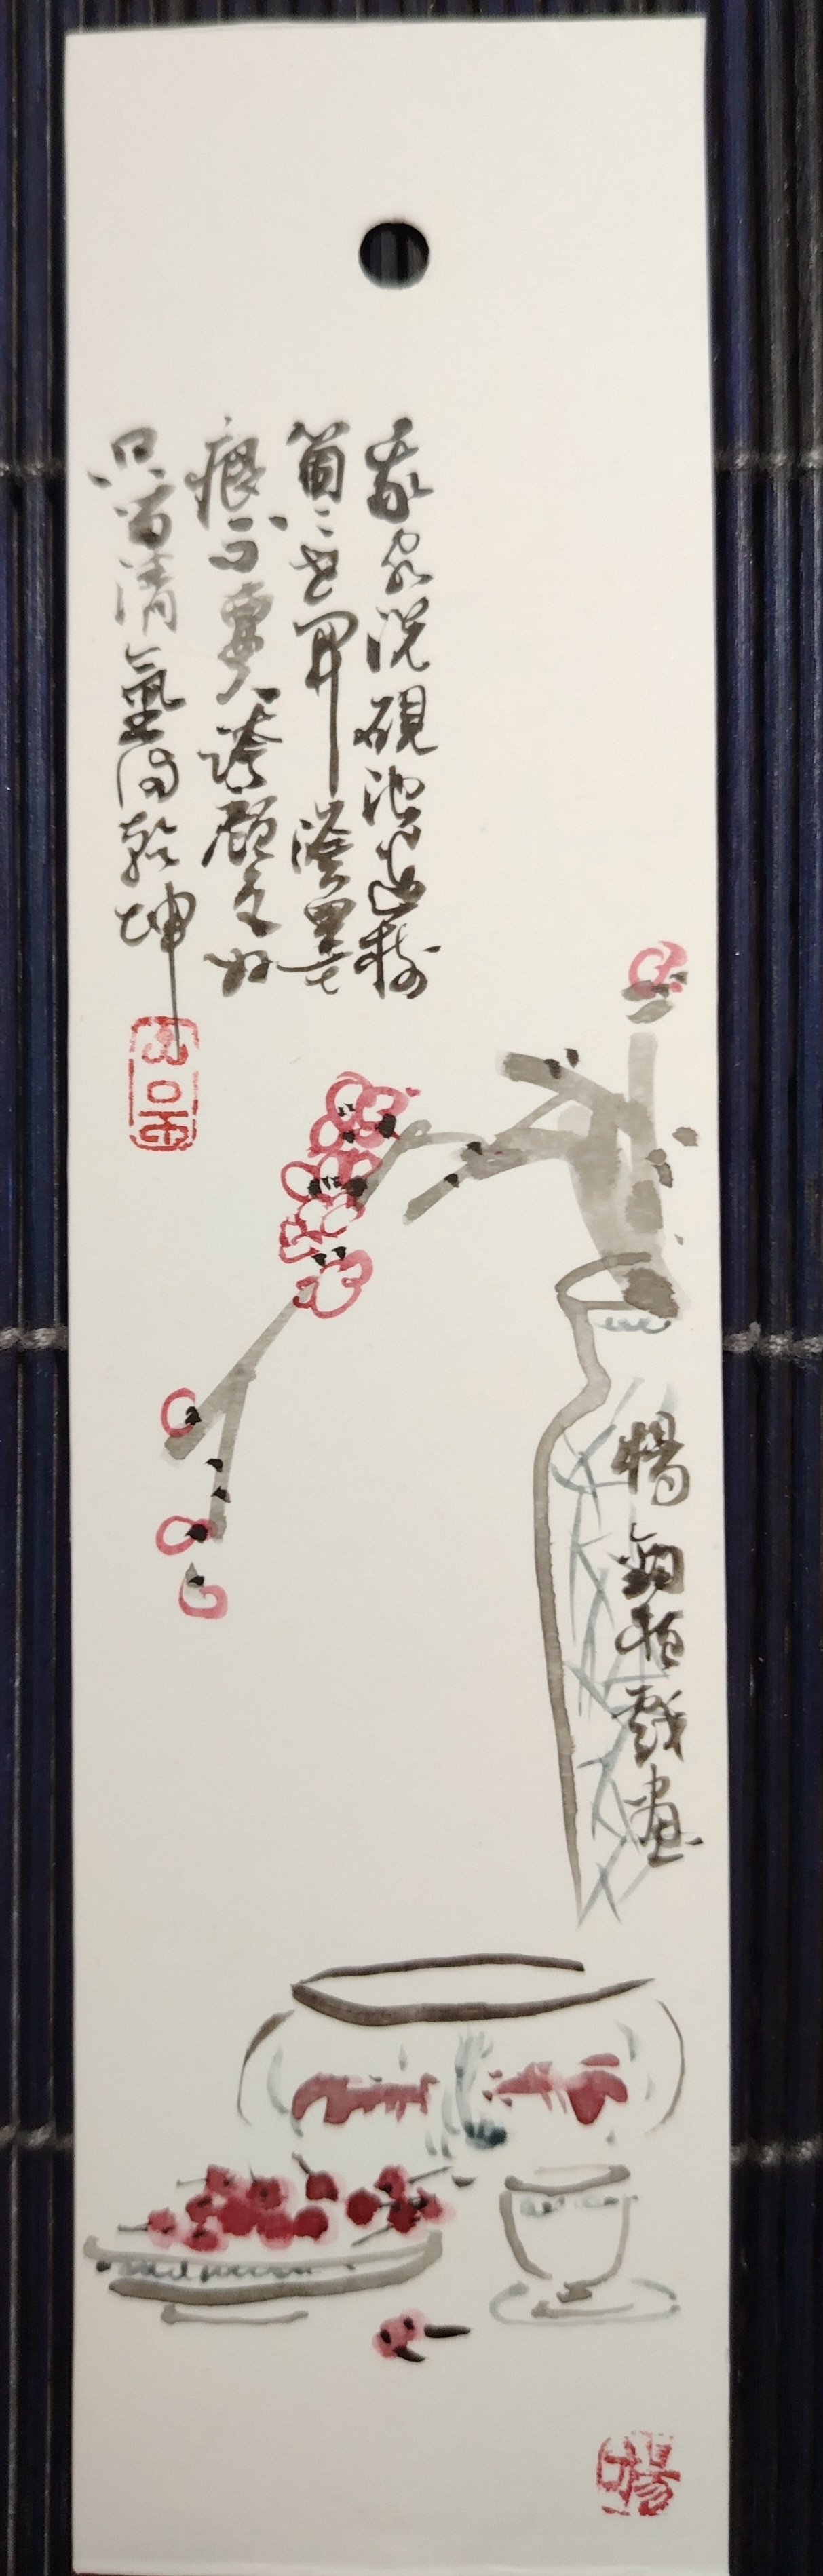 我家洗硯池邊樹
箇〻花開淡墨
痕不要人誇顏色好
只留清氣滿乾坤
楊鈞戲畫
楊